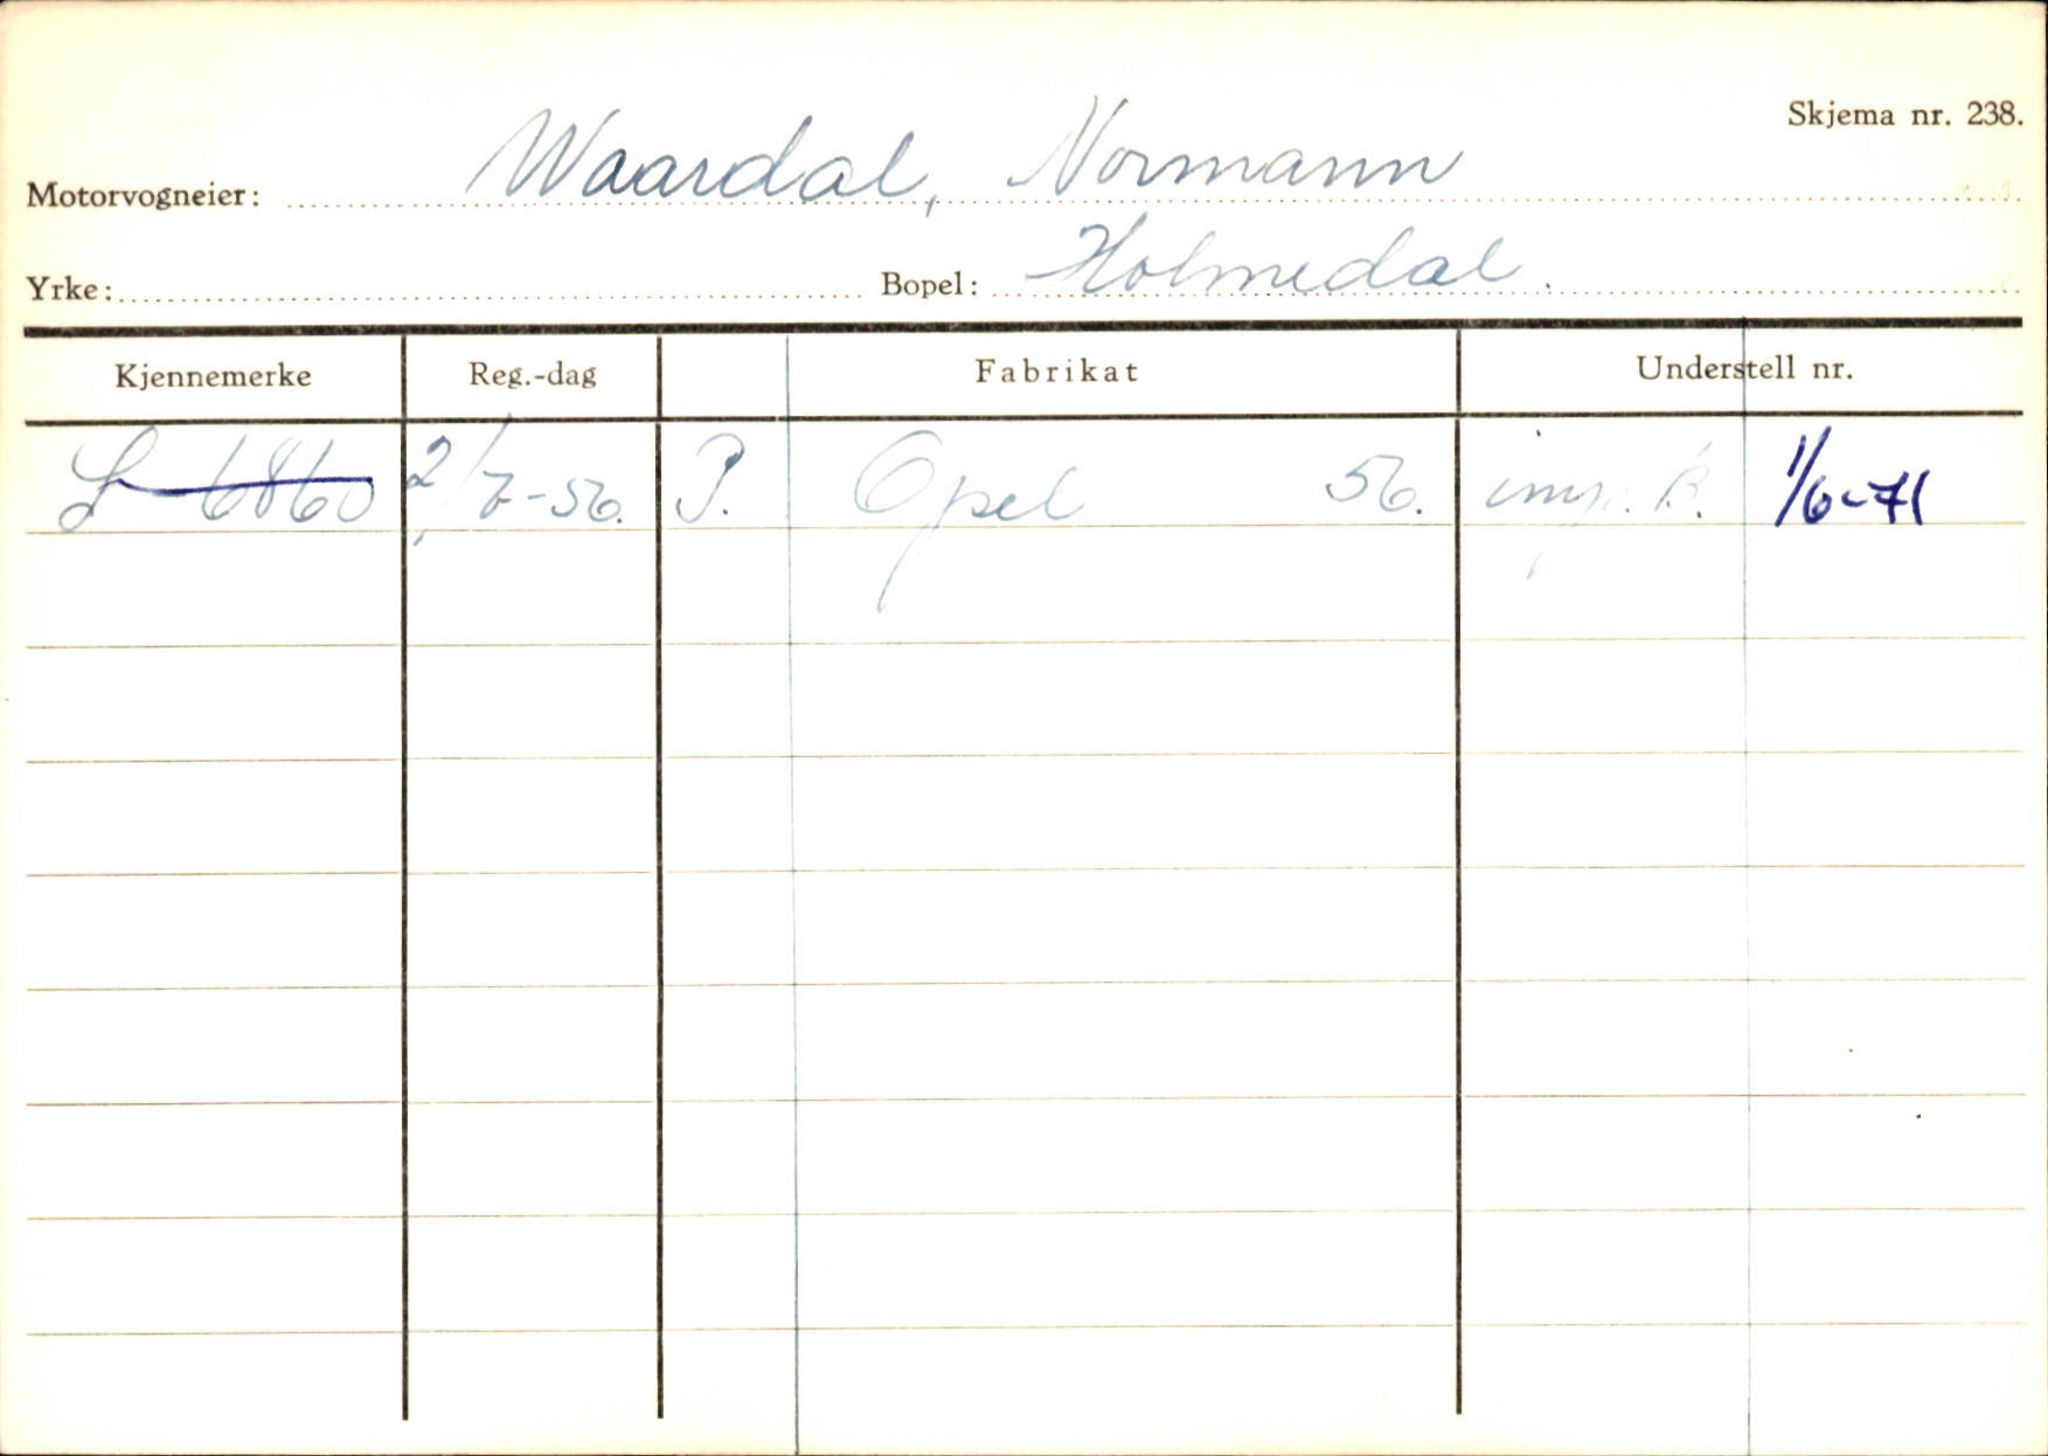 Skjema nr. 238.
Motorvogneier: Waardal, Normann
Yrke: Bopel: Holmedal.
Kjennemerke Reg.-dag Fabrikat Understell nr.
S 6860 2/7-56. P. Opel 56. imp. B. 1/6-71